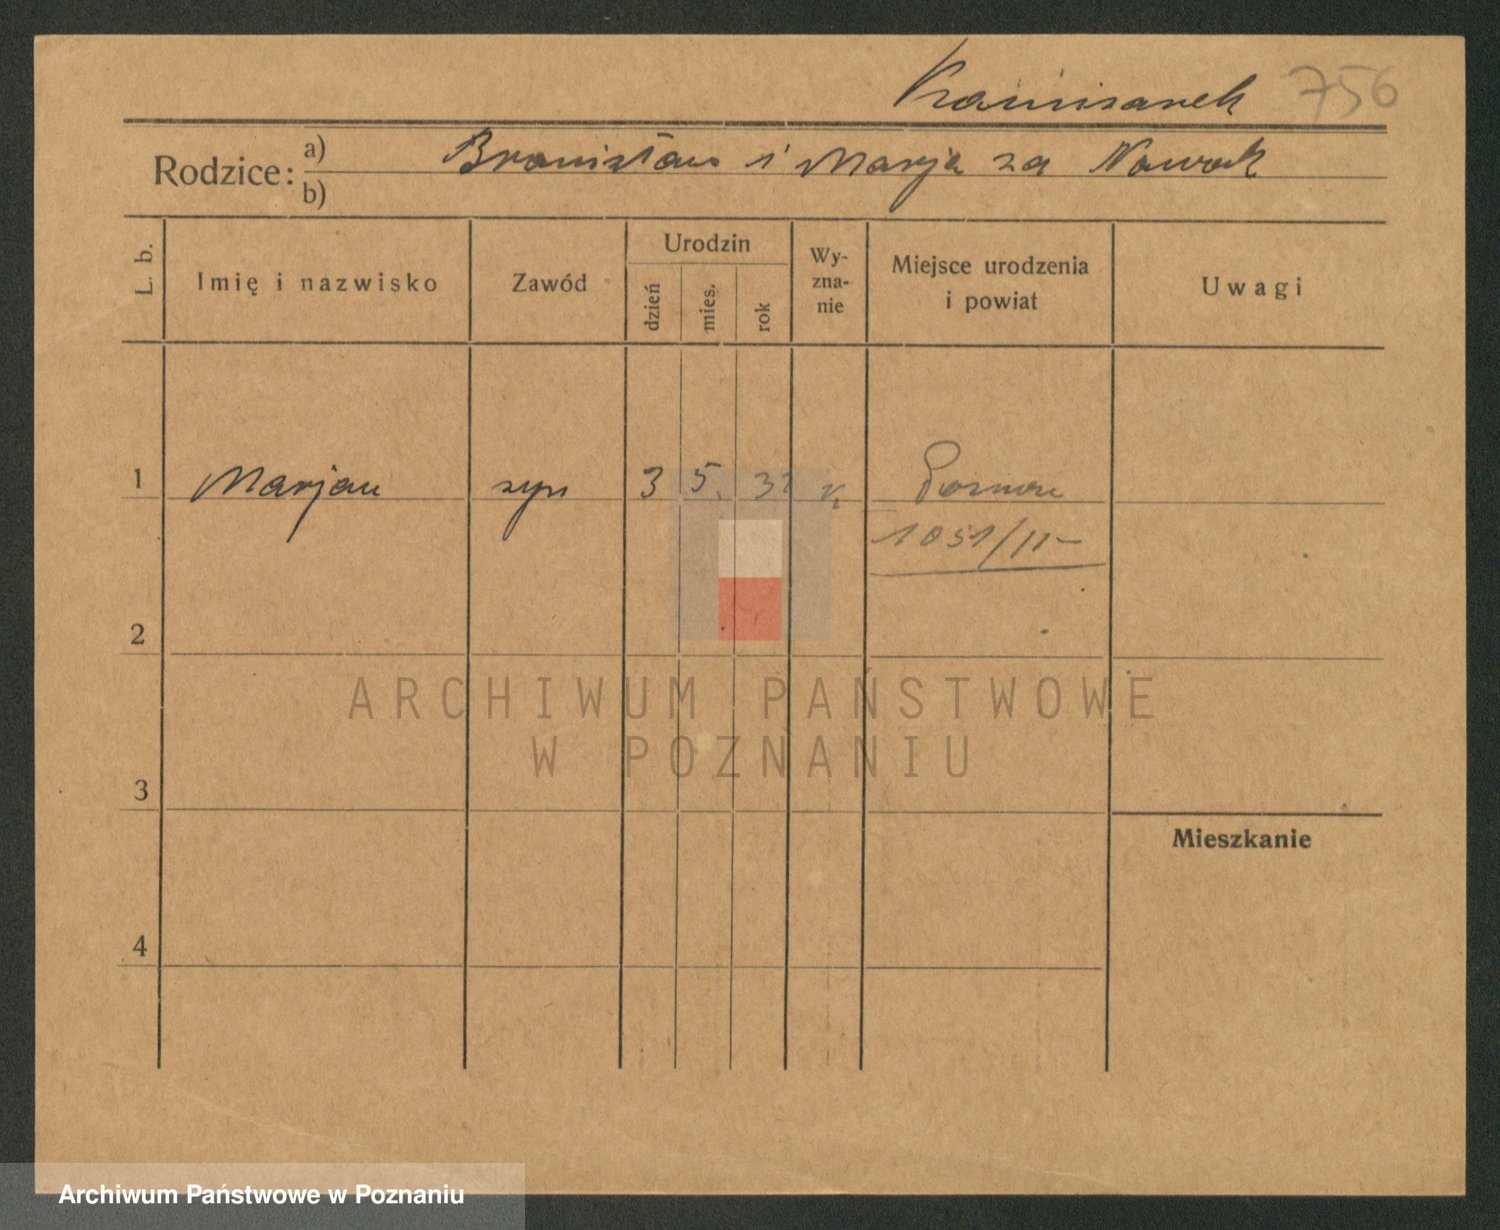 756
Rodzice: a) Bronisław i Marja za Nowak
b)
L. b.
Imię i nazwisko
Zawód
Urodzin
dzień
mies.
rok
Wy-
zna-
nie
Miejsce urodzenia
i powiat
Uwagi
1 Marjan syn 3 5. k
1051/II-
2
3
Mieszkanie
4
ARCHIWUM PAŃSTWOWE
W POZNANIU
Archiwum Państwowe w Poznaniu